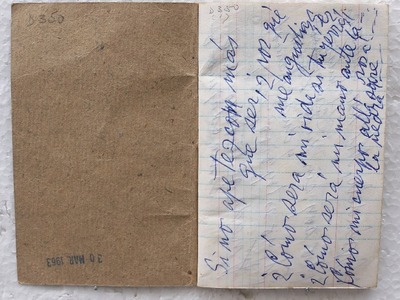 D350
30 MAR. 1963
D350
Si no apetezco más
que ser, ¿por qué
me angustia
¿Cómo será mi vida si tu
¿Cómo será mi mano ante la
¿Cómo mi cuerpo allí
la piedra